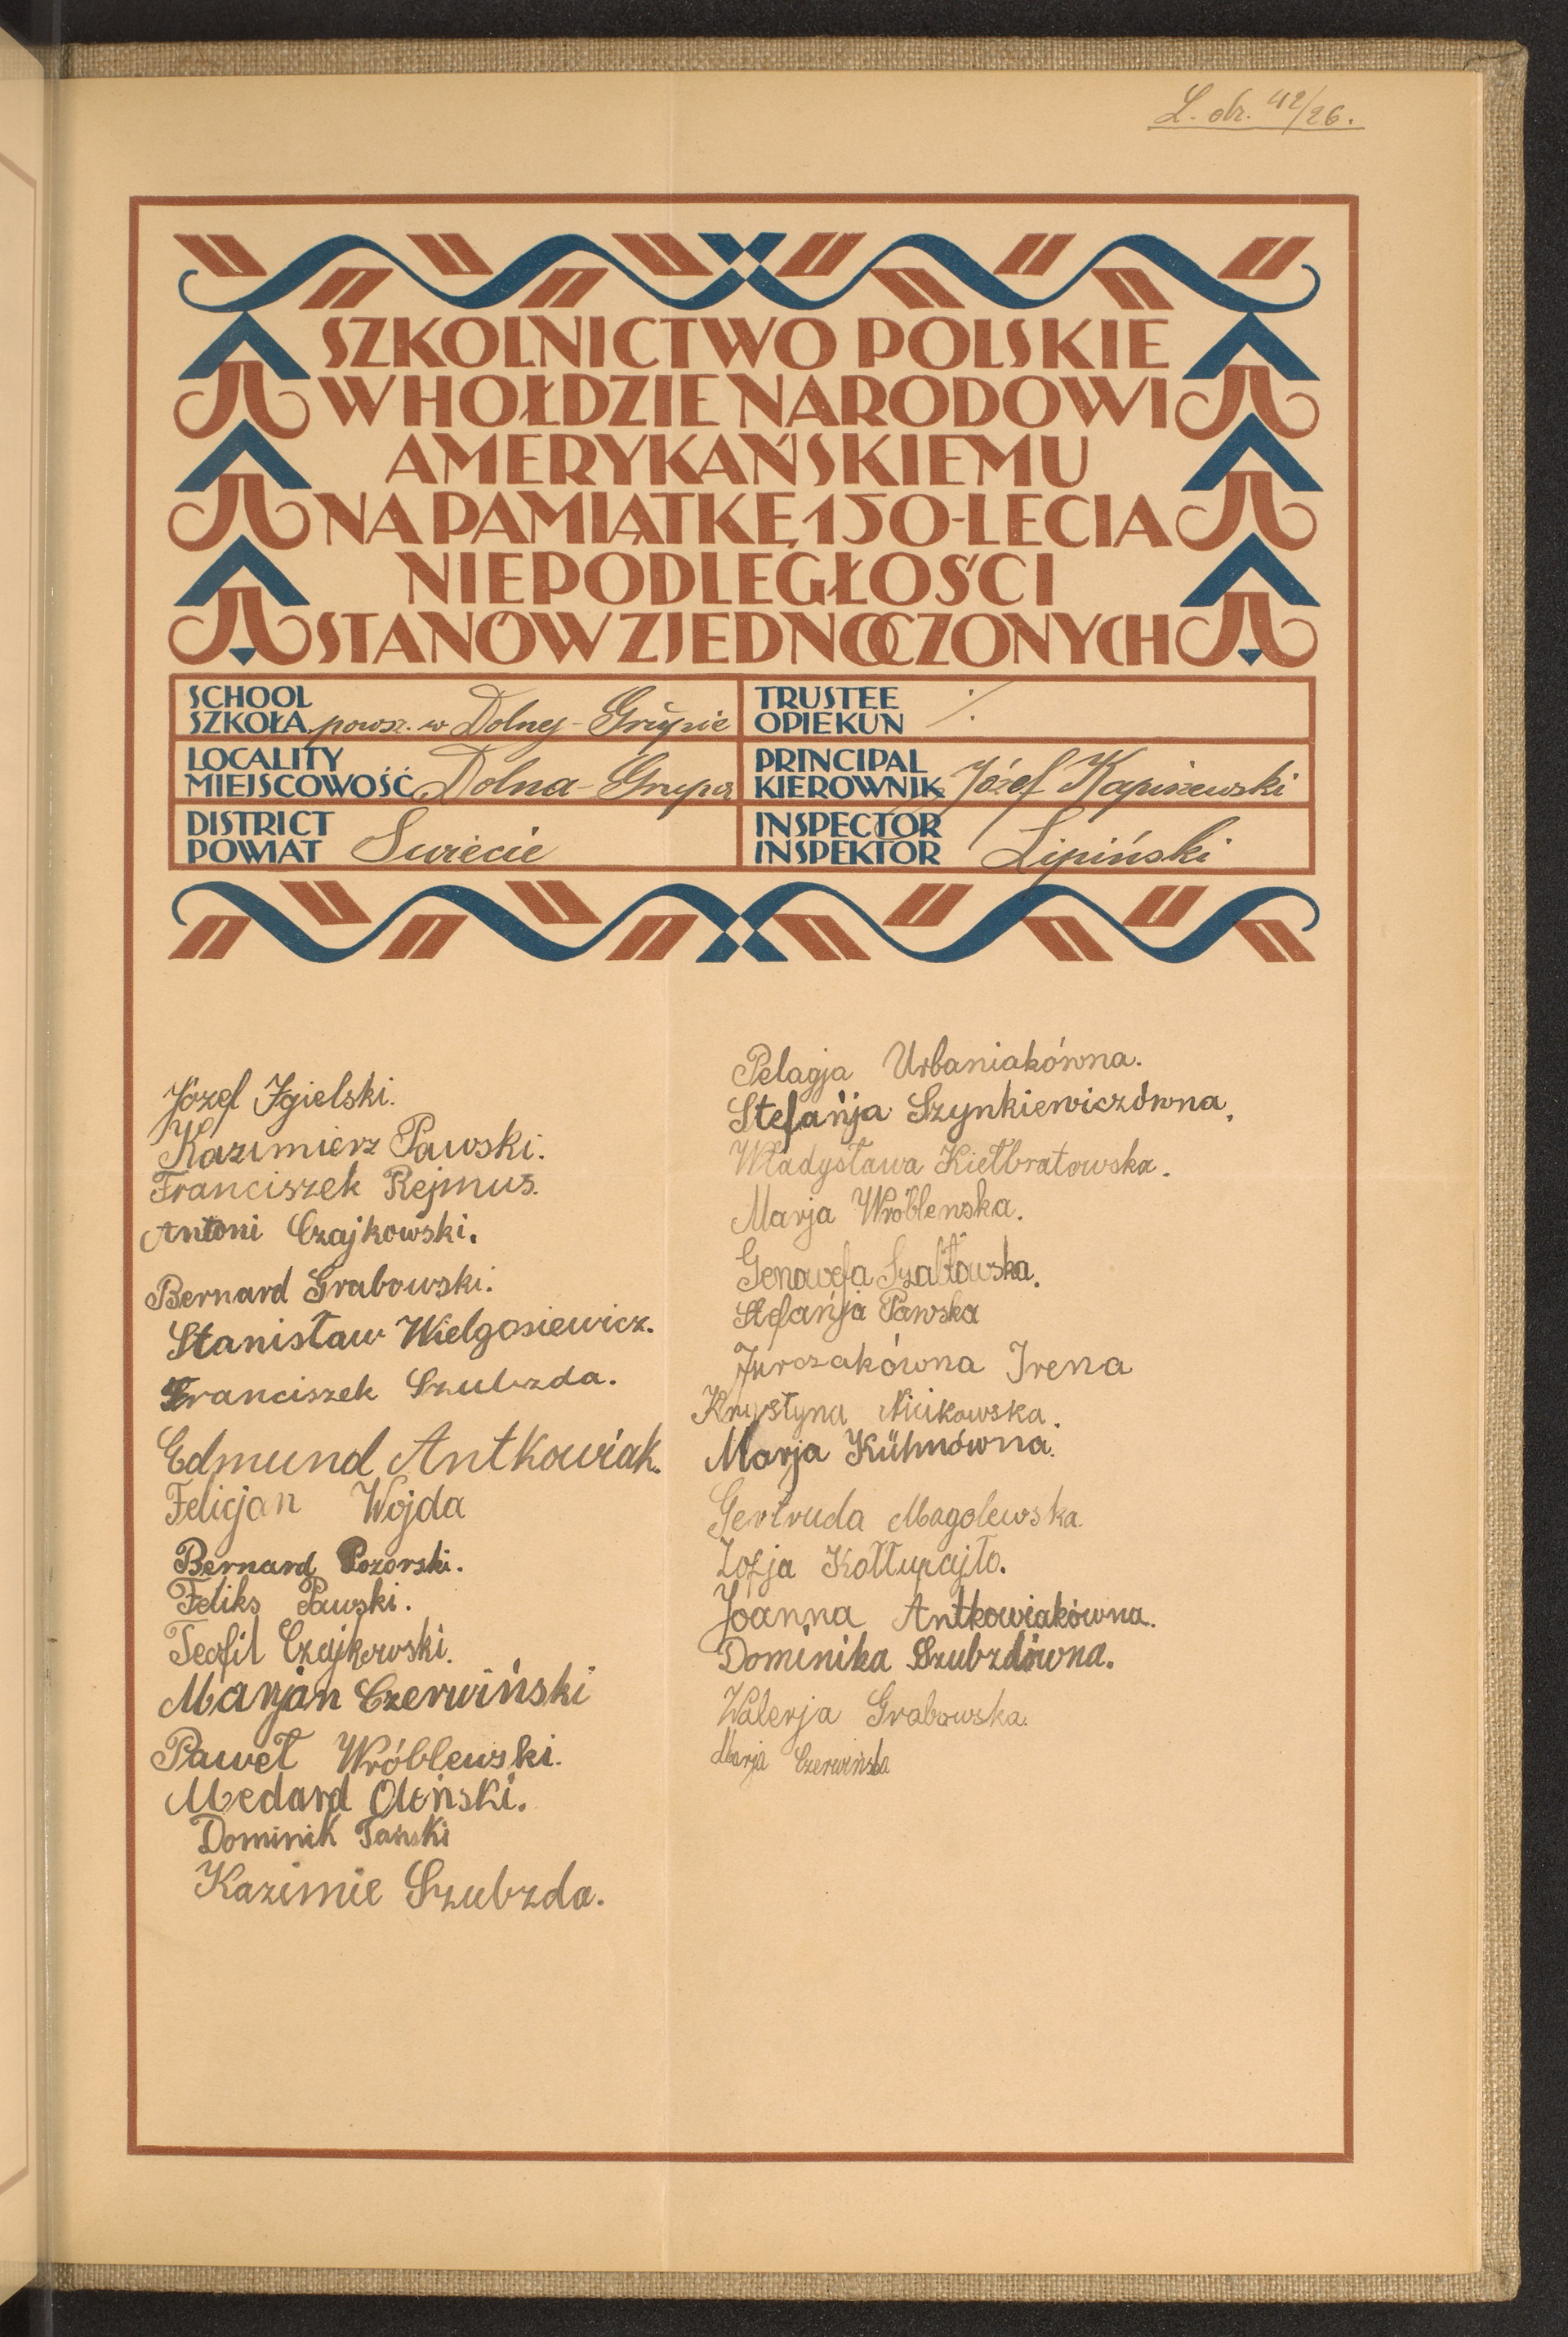 L. dz. 42/26.
SZKOLNICTWO POLSKIE
W HOŁDZIE NARODOWI
AMERYKAŃSKIEMU
NA PAMIĄTKĘ 150-LECIA
NIEPODLEGŁOŚCI
STANÓW ZJEDNOCZONYCH
SCHOOL
SZKOŁA powsz. w Dolnej-Grupie
TRUSTEE
OPIEKUN ./.
LOCALITY
MIEJSCOWOŚĆ Dolna-Grupa
PRINCIPAL
KIEROWNIK Józef Kapiszewski
DISTRICT
POWIAT Świecie
INSPECTOR
INSPEKTOR Lipiński
Józef Igielski.
Kazimierz Pawski.
Franciszek Rejmus.
Antoni Czajkowski.
Bernard Grabowski.
Stanisław Wielgosiewicz.
Franciszek Szubzda.
Edmund Antkowiak.
Felicjan Wojda
Bernard Pozorski.
Feliks Pawski.
Teofil Czajkowski.
Marjan Czerwiński
Paweł Wróblewski.
Medard Oleński.
Dominik Tański
Kazimie Szubzda.
Pelagja Urbaniakówna.
Stefańja Szynkiewiczówna.
Władysława Kiełbratowska.
Marja Wróblewska.
Genowefa Szałtowska.
Stefańja Pawska
Jurczakówna Irena
Krystyna
Marja Kühnówna.
Gertruda Magolewska
Zofja Kołłupajło.
Joanna Antkowiakówna.
Dominika Szubzdówna.
Walerja Grabowska.
Marja Czerwińska